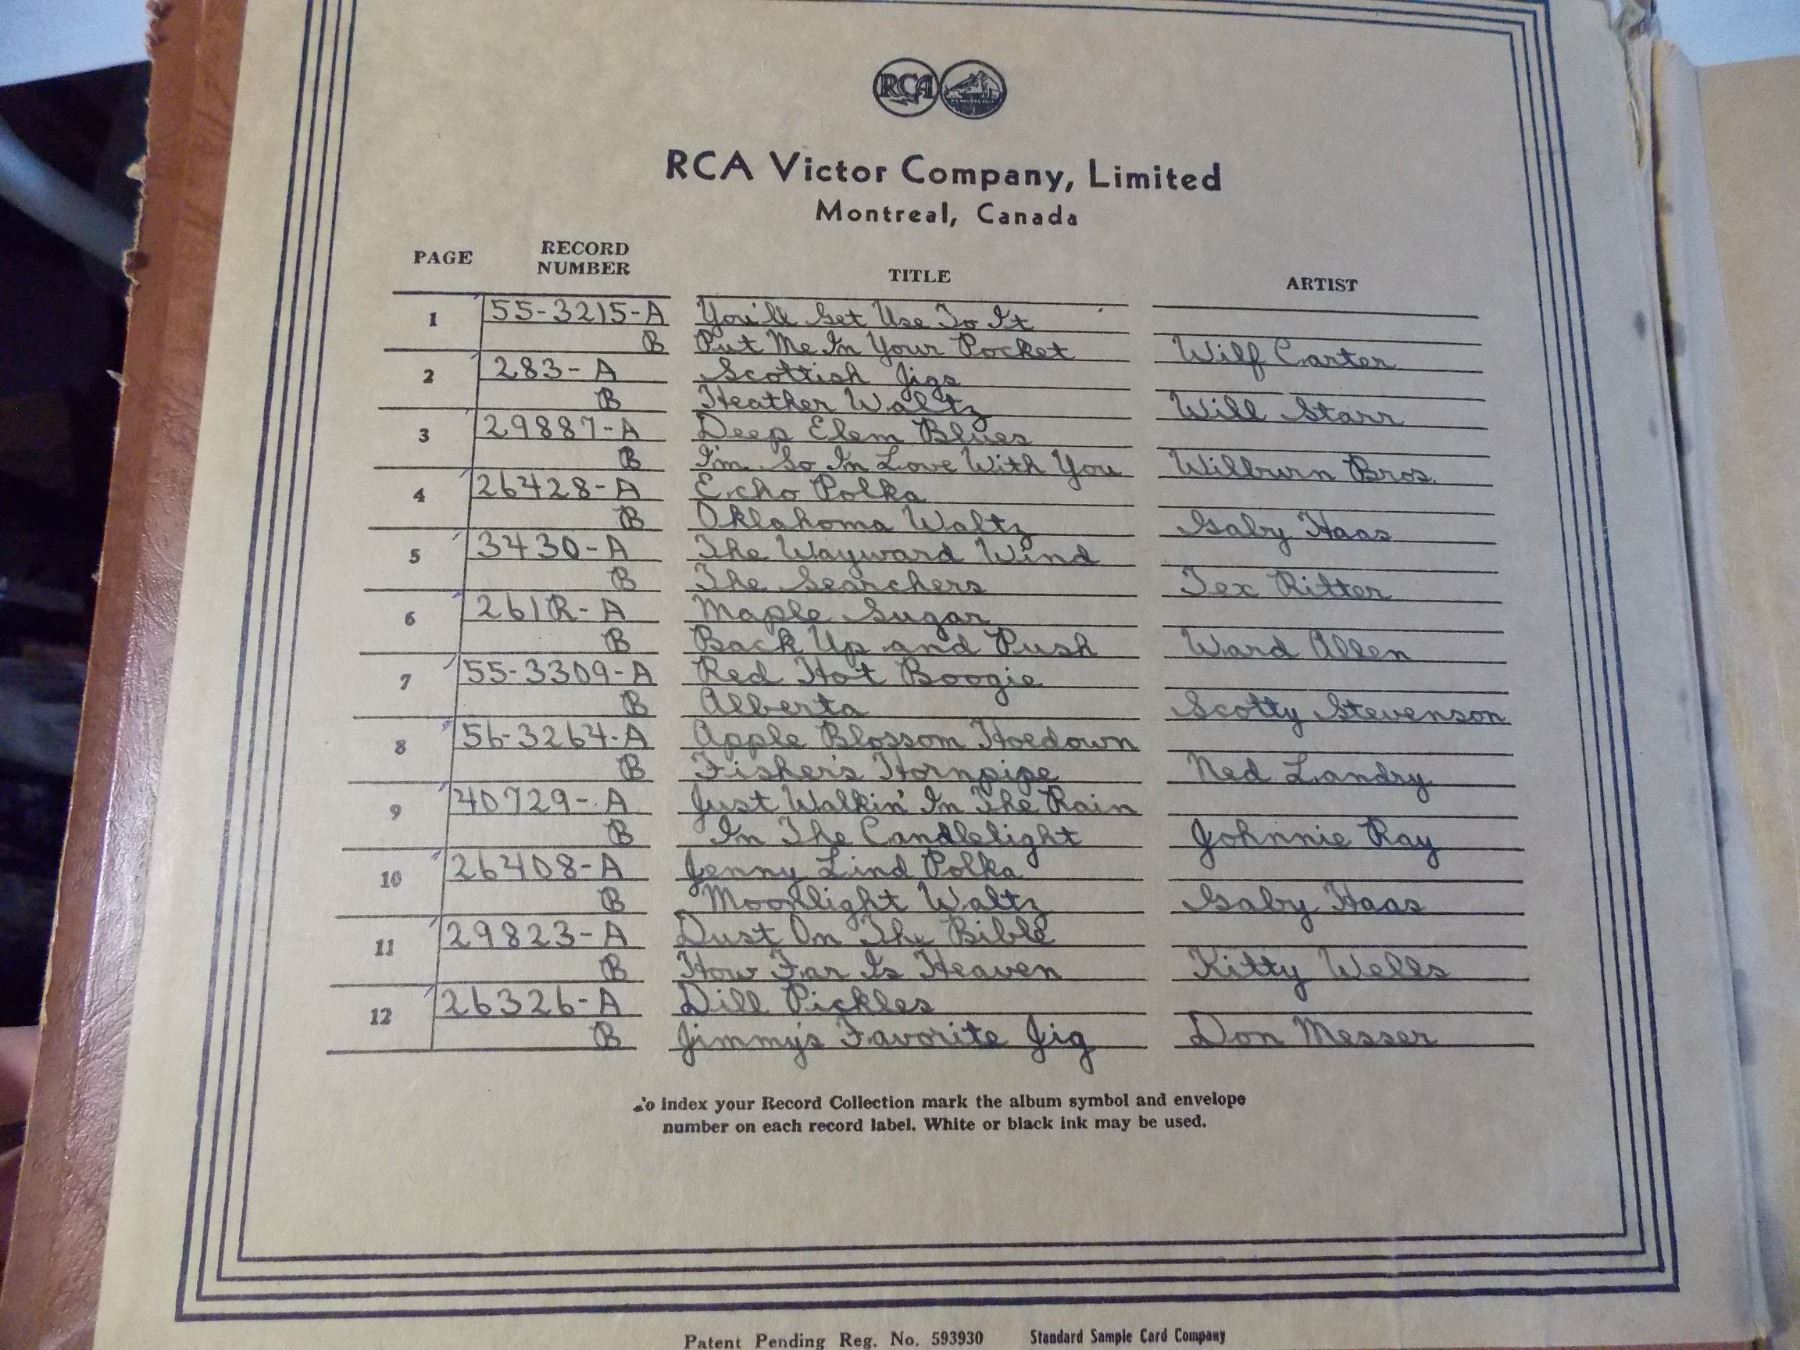 RCA
RCA Victor Company, Limited
Montreal, Canada
PAGE RECORD NUMBER TITLE ARTIST
1 55-3215-A You'll Get Use To It
B Put Me In Your Pocket Wilf Carter
2 283-A Scottish Jigs
B Heather Waltz Will Starr
3 29887-A Deep Elem Blues
B I'm So In Love With You Wilburn Bros.
4 26428-A Echo Polka
B Oklahoma Waltz Gaby Haas
5 3430-A The Wayward Wind
B The Searchers Tex Ritter
6 261R-A Maple Sugar
B Back Up and Push Ward Allen
7 55-3309-A Red Hot Boogie
B Alberta Scotty Stevenson
8 56-3264-A Apple Blossom Hoedown
B Fisher's Hornpipe Ned Landry
9 40729-A Just Walkin' In The Rain
B In The Candlelight Johnnie Ray
10 26408-A Jenny Lind Polka
B Moonlight Waltz Gaby Haas
11 29823-A Dust On The Bible
B How Far Is Heaven Kitty Wells
12 26326-A Dill Pickles
B Jimmy's Favorite Jig Don Messer
To index your Record Collection mark the album symbol and envelope
number on each record label. White or black ink may be used.
Patent Pending Reg. No. 593930 Standard Sample Card Company